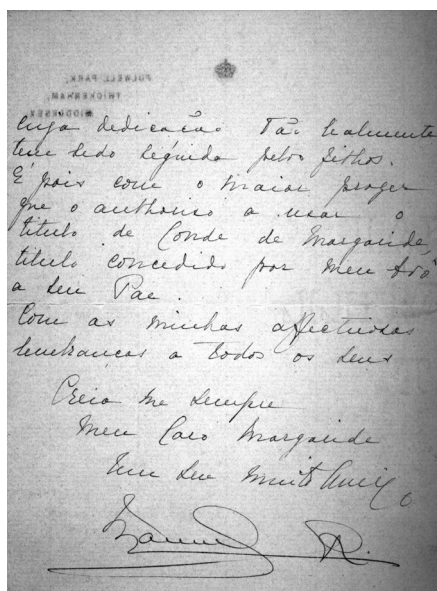 FULWELL PARK,
TWICKENHAM,
MIDDLESEX
cuja dedicação tão lealmente
tem sido seguida pelos filhos.
É pois com o maior prazer
que o authoriso a usar o
titulo de Conde de Margaride,
titulo concedido por meu Avô
a seu Pae.
Com as minhas affectuosas
lembranças a todos os seus
Creia me sempre
Meu Caro Margaride
Um seu muito Amigo
Manuel R.